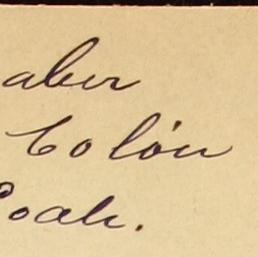 aber
Colón
Coah.